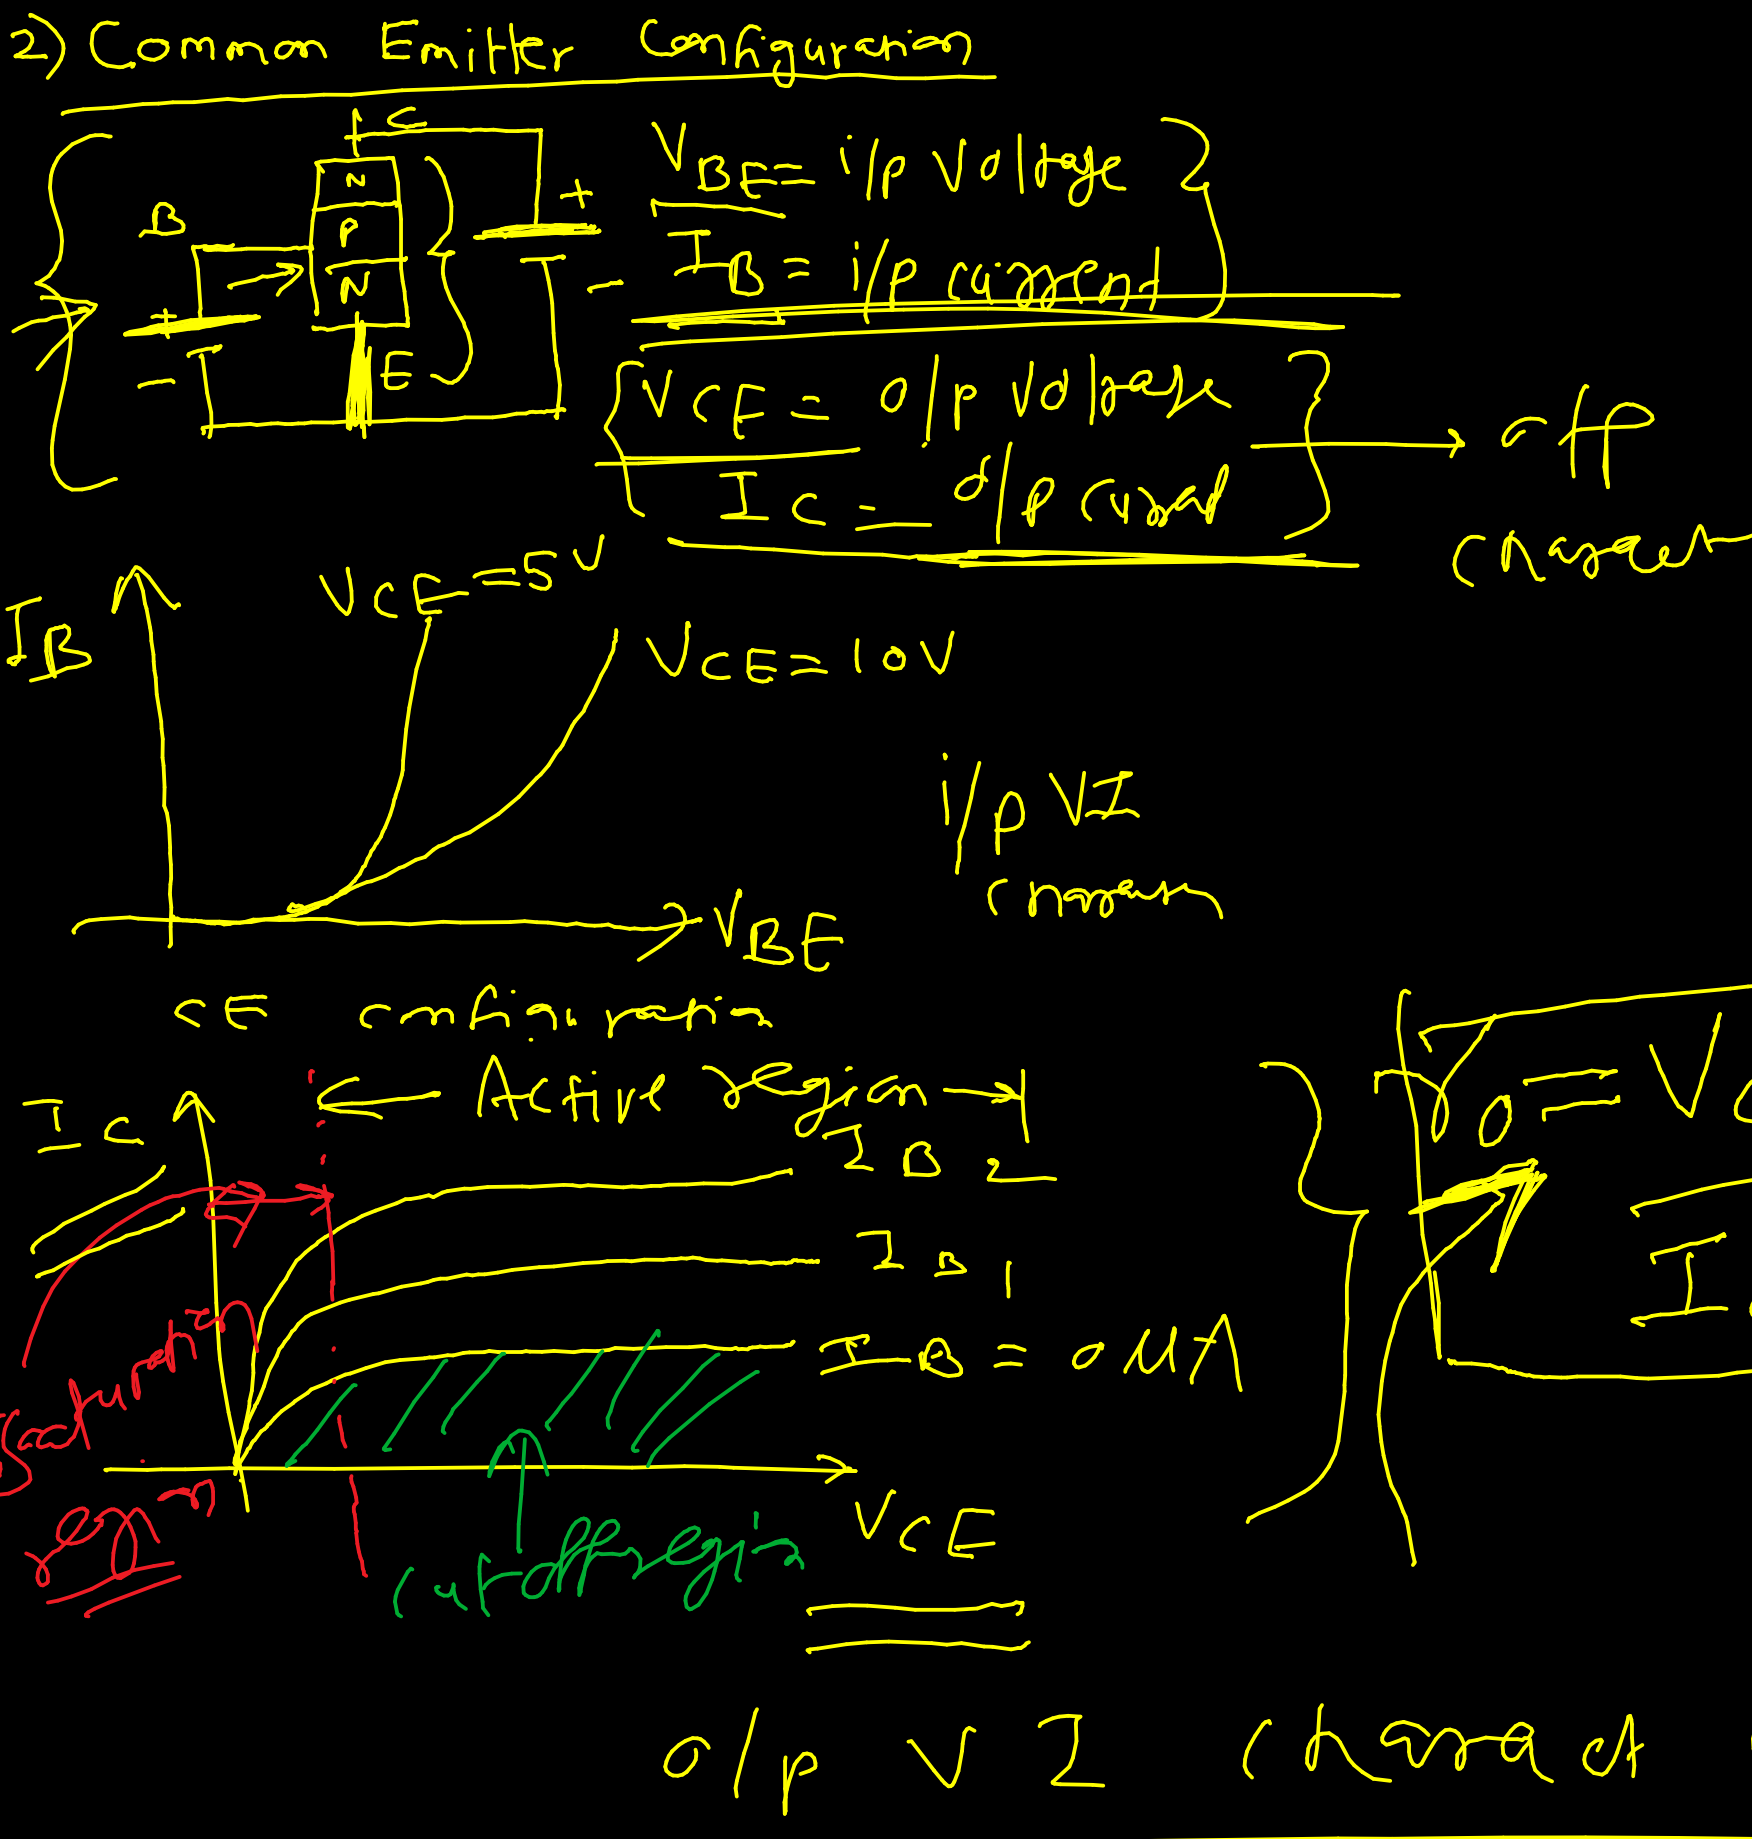 2) Common Emitter Configuration
C
N
P
N
B
E
+
-
+
-
VBE = i/p Voltage
IB = i/p current
VCE = o/p Voltage
IC = o/p current
IB
VCE = 5V
VCE = 10V
VBE
i/p VI
CE configuration
IC
Active region
IB2
IB1
IB = 0 μA
Saturation
regn
cutoff region
VCE
r0 = V
I
o/p VI charact